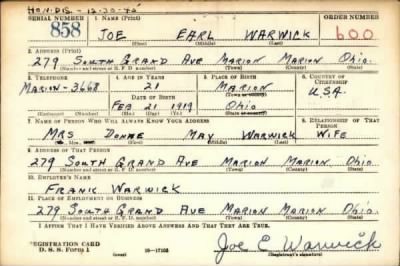 HON. DIS. - 12-30-45
SERIAL NUMBER 1. NAME (Print) ORDER NUMBER
858 JOE EARL WARWICK 600
(First) (Middle) (Last)
2. ADDRESS (Print)
279 SOUTH GRAND AVE MARION MARION OHIO.
(Number and street or R. F. D. number) (Town) (County) (State)
3. TELEPHONE 4. AGE IN YEARS 5. PLACE OF BIRTH 6. COUNTRY OF CITIZENSHIP
MARION-3668 21 MARION
DATE OF BIRTH (Town or county) U.S.A.
FEB 21 1919 OHIO
(Exchange) (Number) (Mo.) (Day) (Yr.) (State or country)
7. NAME OF PERSON WHO WILL ALWAYS KNOW YOUR ADDRESS 8. RELATIONSHIP OF THAT PERSON
MRS MAY WARWICK WIFE
(Mr., Mrs., Miss) (First) (Middle) (Last)
9. ADDRESS OF THAT PERSON
279 SOUTH GRAND AVE MARION MARION OHIO
(Number and street or R. F. D. number) (Town) (County) (State)
10. EMPLOYER'S NAME
FRANK WARWICK
11. PLACE OF EMPLOYMENT OR BUSINESS
279 SOUTH GRAND AVE MARION MARION OHIO.
(Number and street or R. F. D. number) (Town) (County) (State)
I AFFIRM THAT I HAVE VERIFIED ABOVE ANSWERS AND THAT THEY ARE TRUE.
REGISTRATION CARD
D. S. S. Form 1 (over) 16-17105 Joe E Warwick
(Registrant's signature)